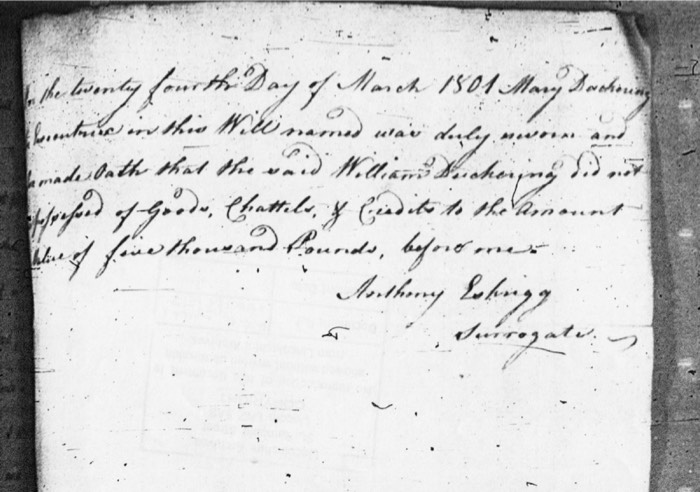 On the twenty fourth Day of March 1801 Mary Duckering
Executrix in this Will named was duly sworn and
made Oath that the said William Duckering did not
possessed of Goods, Chattels, & Credits to the Amount
Value of five thousand Pounds, before me
Anthony
Surrogate.